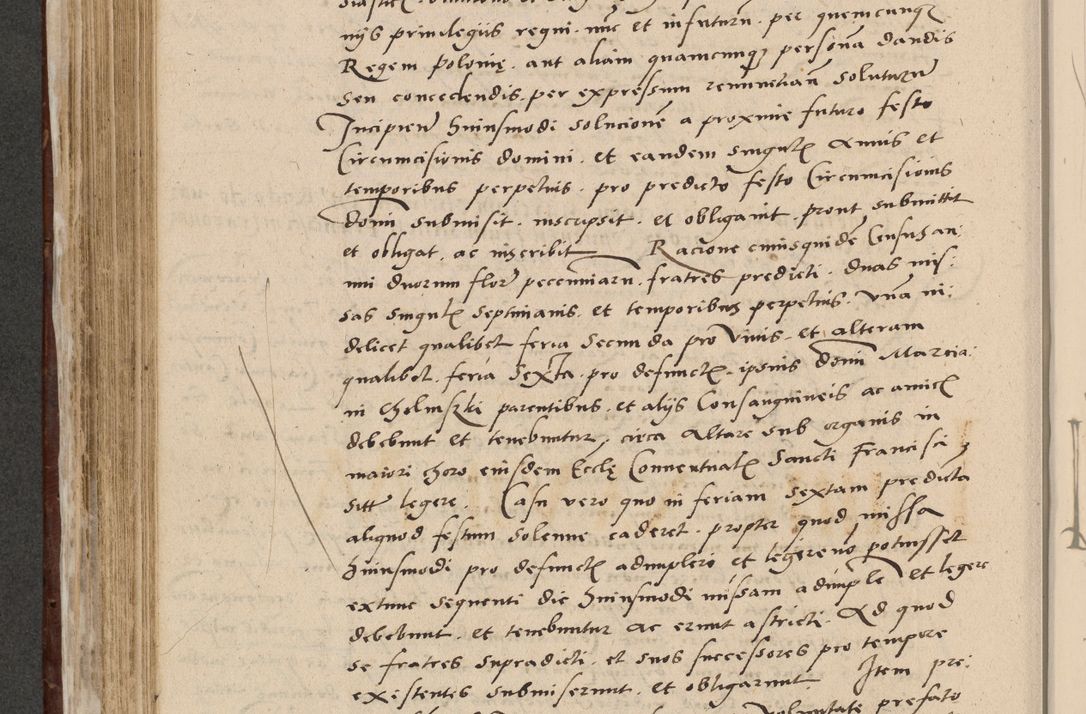 nijs privilegiis regni. nunc et in futurum. per quemcunq3
Regem Polonię. aut aliam quamcunq3 persona dandis
seu concedendis. per expressum renunctian solutur
Incipien huiusmodi solucionẽ a proxime futuro festo
Circumcisionis domini. et eandem singul Annis et
temporibus perpetuis. pro predicto festo Circumcisionis
domi submisit. inscripsit. et obligavit. prout submittit
et obligat. ac inscribit Racione cuiusquidẽ Census an:
nui duorum flor pecunniarũ. fratres predicti. duas mis:
sas singul septimanis. et temporibus perpetuis. Vnã vi:
delicet qualibet feria secunda pro vivis. et alteram
qualibet. feria sexta. pro defunct. ipsius domi Marcia:
ni Cholmszki parentibus. et alijs Consanguineis ac amic
debebunt et tenebuntur, circa Altare sub organis in
maiori choro eiusdem Ecclę Conventual Sancti Francisci
sitt legere. Casu vero quo in feriam sextam predicta
aliquod festum solenne caderet. propter quod missa
huiusmodi pro defunct adimpleri et legi non potuisset
extunc sequenti die huiusmodi missam adimple et legere
debebunt. et tenebuntur ac erunt astricti. Ad quod
se fratres supradicti. et suos successores pro tempore
existentes submiserunt. et obligarunt Item pre:
voluntate prefato